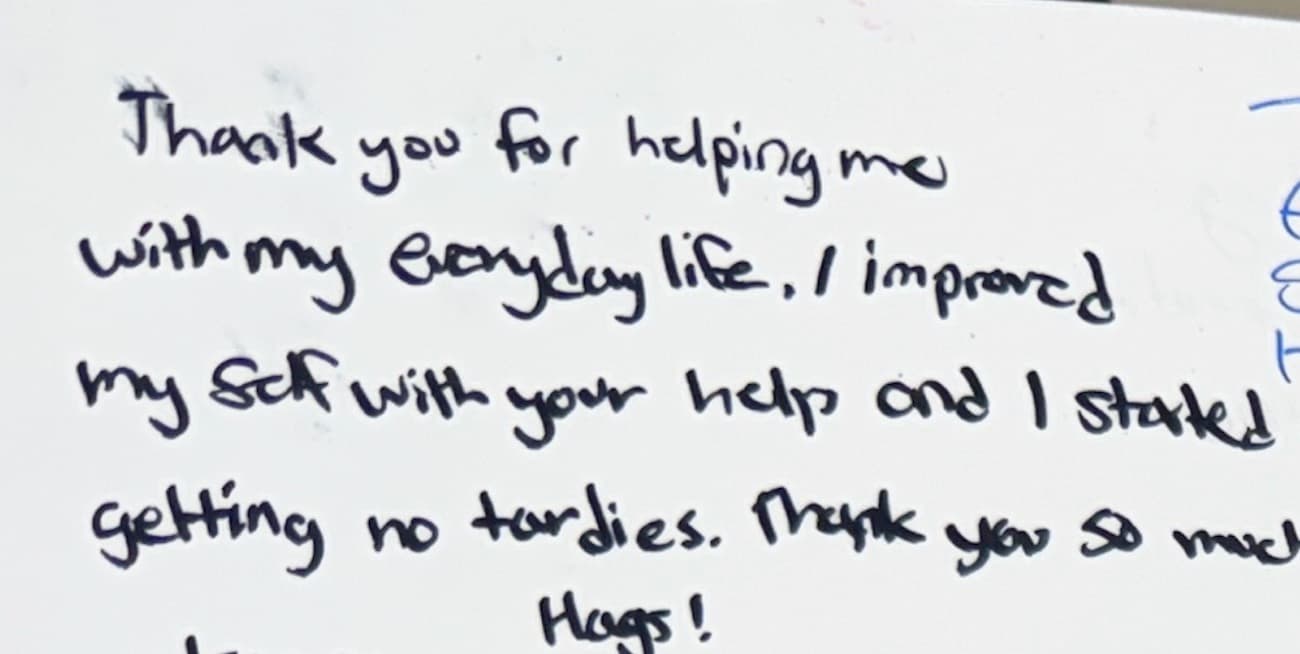 Thank you for helping me
with my everyday life. I improved
my self with your help and I started
getting no tardies. Thank you so much
Hags!